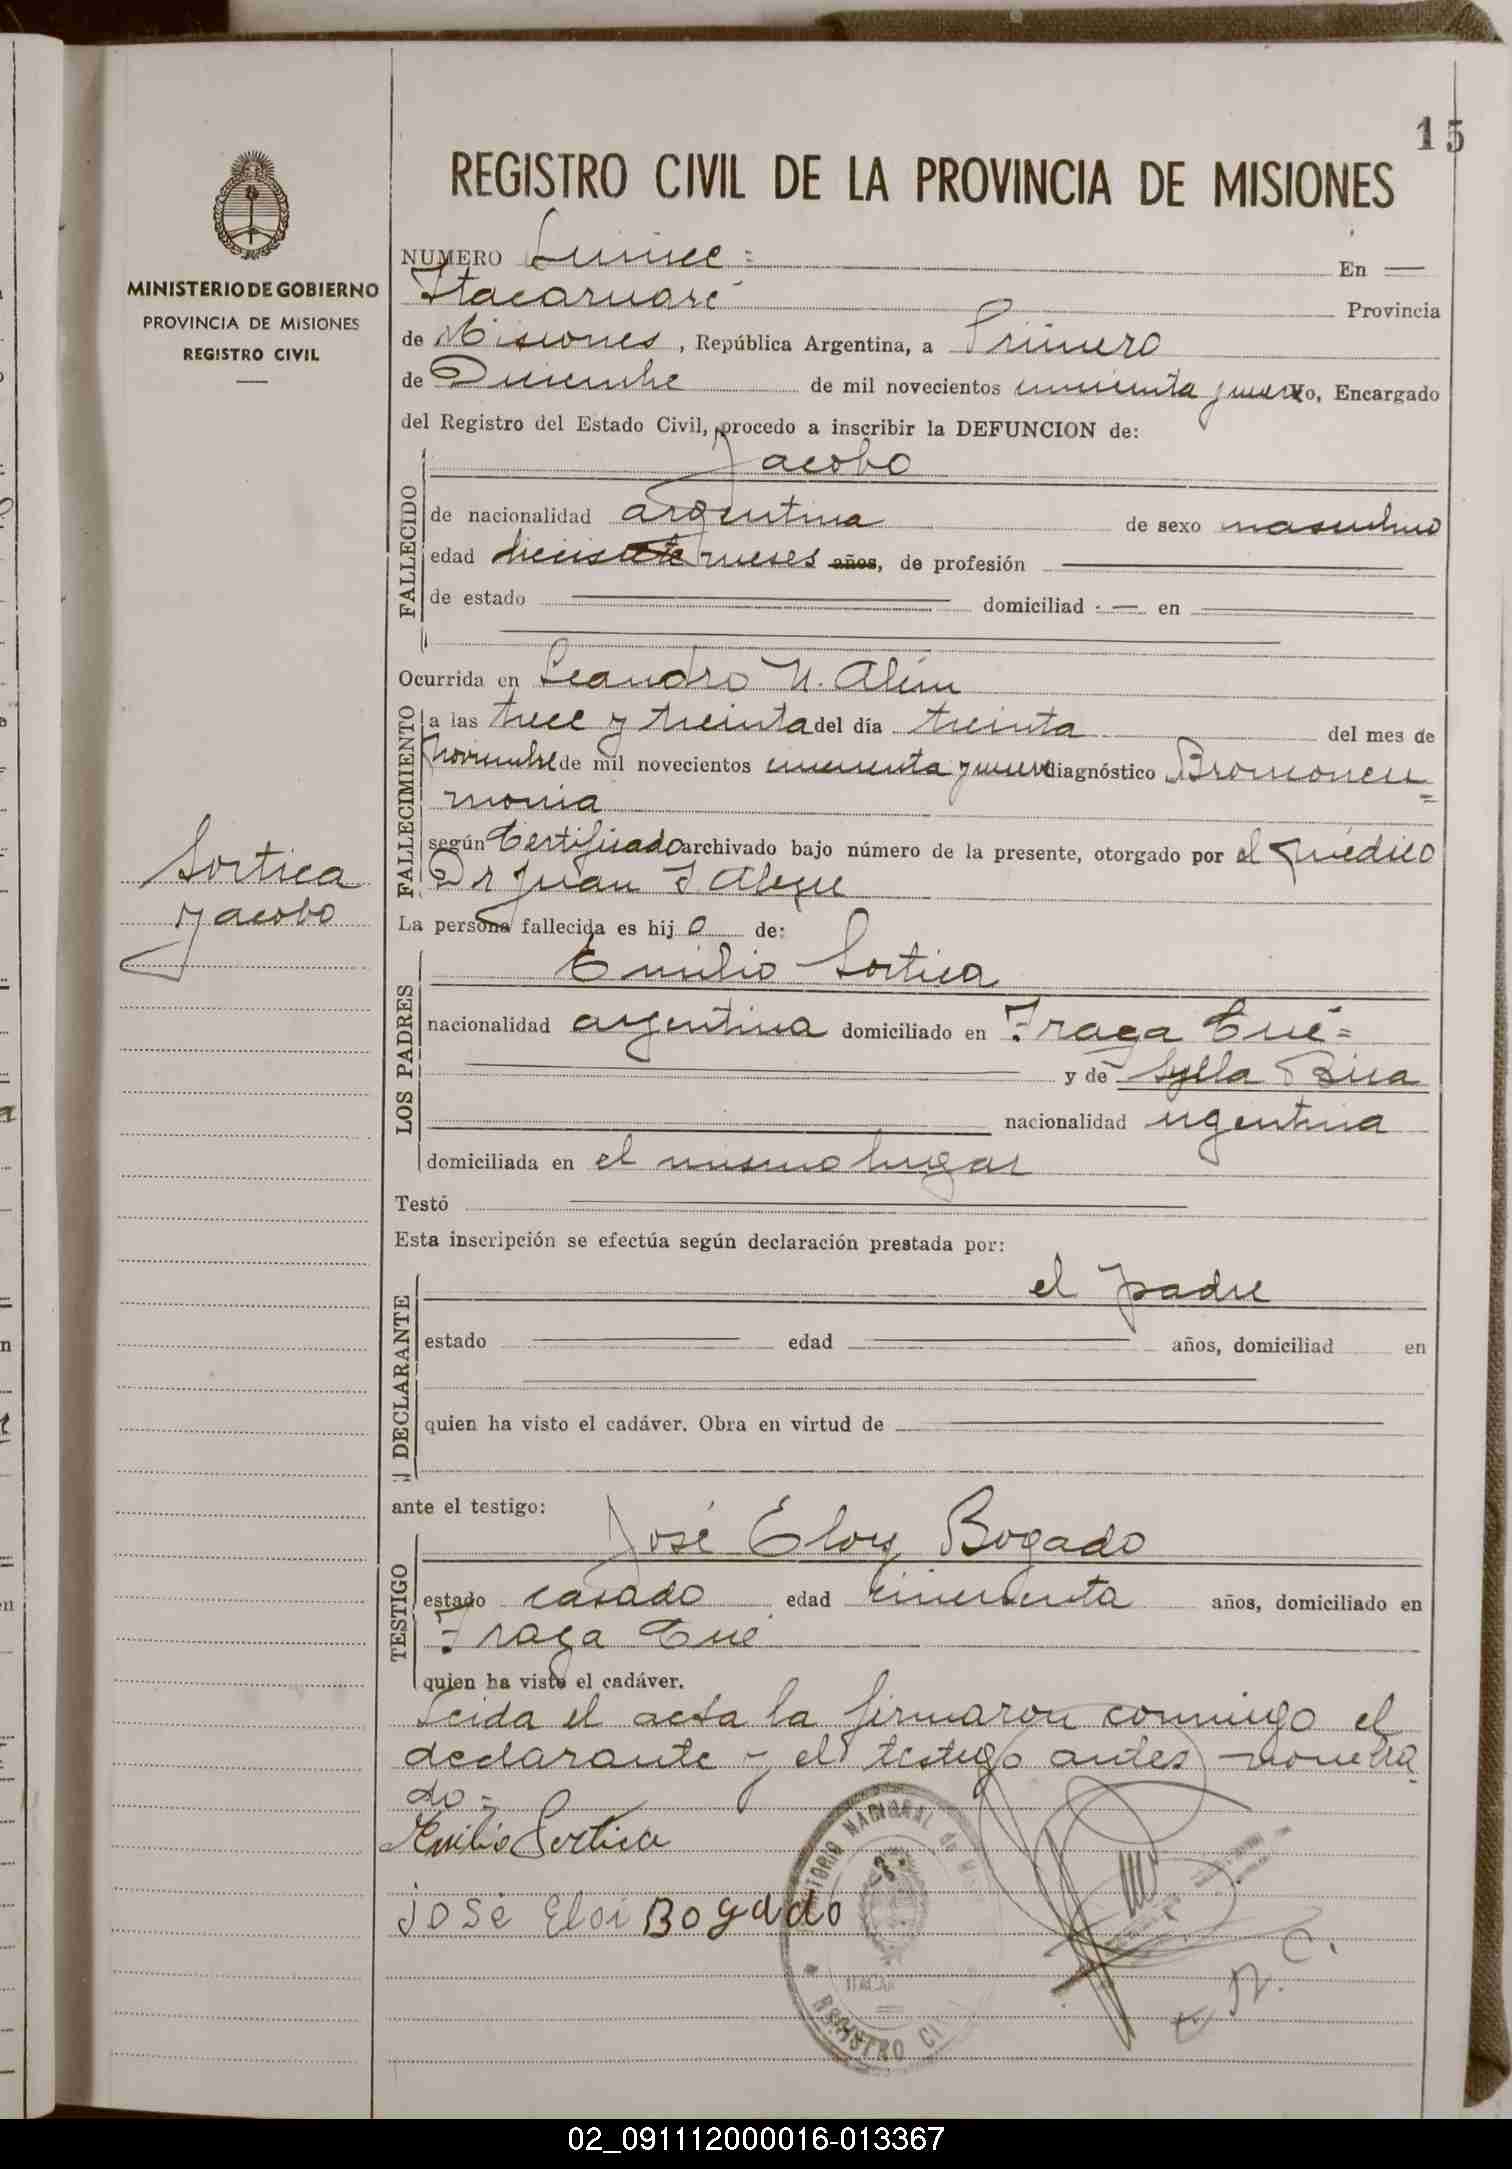 15
REGISTRO CIVIL DE LA PROVINCIA DE MISIONES
MINISTERIO DE GOBIERNO
PROVINCIA DE MISIONES
REGISTRO CIVIL
NUMERO Quince = En —
Itacaruaré Provincia
de Misiones, República Argentina, a Primero
de Diciembre de mil novecientos cincuenta y nueve Yo, Encargado
del Registro del Estado Civil, procedo a inscribir la DEFUNCION de:
FALLECIDO
Jacobo
de nacionalidad argentina de sexo masculino
edad meses años, de profesión
de estado domiciliad — en
Ocurrida en Leandro N. Alem
FALLECIMIENTO
a las trece y treinta del día treinta del mes de
Noviembre de mil novecientos cincuenta y nueve diagnóstico Bronconeu=
monia
según Certificado archivado bajo número de la presente, otorgado por el Médico
Dr Juan
Sortica
Jacobo
La persona fallecida es hij o de:
LOS PADRES
Emilio Sortica
nacionalidad argentina domiciliado en Fraga Cué=
y de Sylla
nacionalidad argentina
domiciliada en el mismo lugar
Testó
Esta inscripción se efectúa según declaración prestada por:
DECLARANTE
el padre
estado edad años, domiciliad en
quien ha visto el cadáver. Obra en virtud de
ante el testigo:
TESTIGO
José Eloy Bogado
estado casado edad cincuenta años, domiciliado en
Fraga Cué
quien ha visto el cadáver.
Leida el acta la firmaron conmigo el
declarante y el testigo antes nombra
do=
Emilio Sortica
José Eloi Bogado
TERRITORIO NACIONAL de
ITACAR
REGISTRO CI
02_091112000016-013367